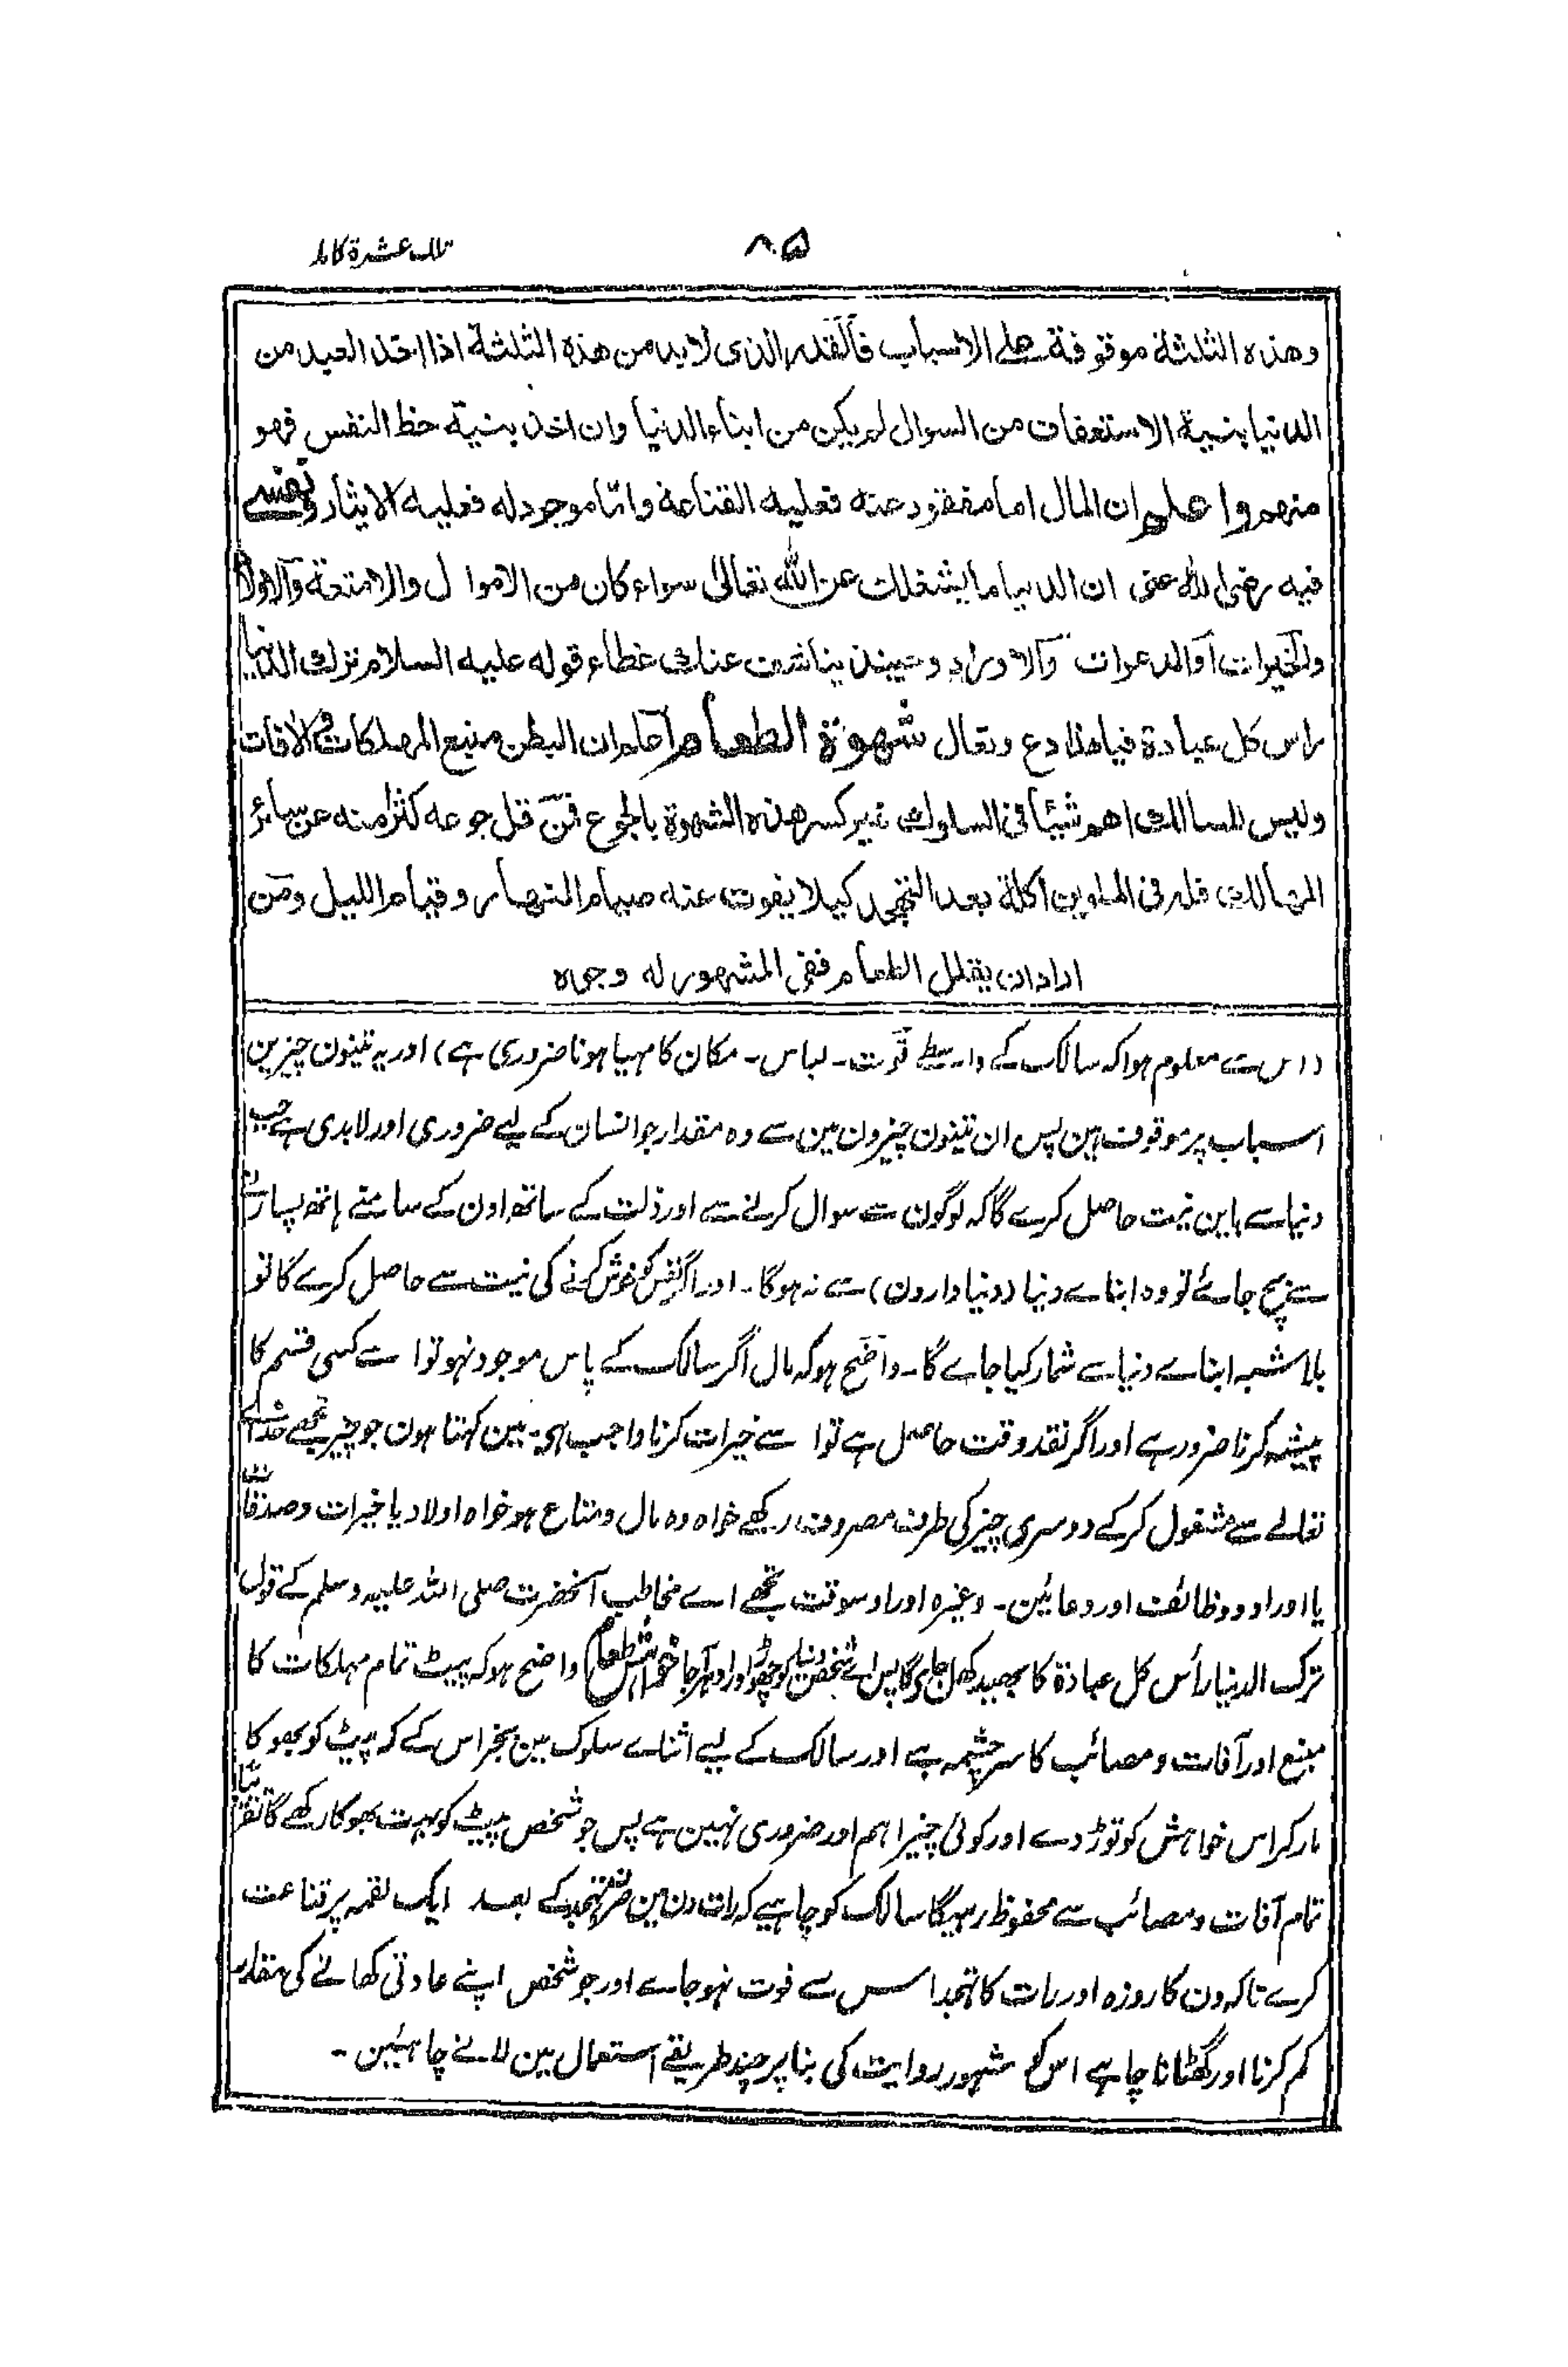 تلك عشرة كاملة
۸۵
وهذه الثلثة موقوفة على الاسباب فالقدر الذى لابد من هذه الثلثة اذا اخذ العبد من
الدنيا بنية الاستعفاف من السوال لم يكن من ابناء الدنيا وان اخذ بنية حظ النفس فهو
منهم واعلم ان المال اما مفقود عنه فعليه القناعة واما موجود له فعليه الايثار
فيه رضى الله عنى ان الدنيا ما يشغلك عن الله تعالى سواء كان من الاموال والامتعة والاولاد
والخيرات او الدعوات والاوراد وحينئذ ينكشف عنك غطاء قوله عليه السلام ترك الدنيا
راس كل عبادة فيا هذا دع وتعال شهوة الطعام اعلم ان البطن منبع المهلكات والافات
وليس للسالك اهم شيئا فى السلوك غير كسر هذه الشهوة بالجوع فمن قل جوعه كثر منه عن سائر
المهالك فله فى الملوين اكلة بعد التهجد كيلا يفوت عنه صيام النهار وقيام الليل ومن
اراد ان يقلل الطعام ففى المشهور له وجوه
(اس سے معلوم ہوا کہ سالک کے واسطے قوت۔ لباس۔ مکان کا مہیا ہونا ضروری ہے) اور یہ تینون چیزین
اسباب پر موقوف ہین پس ان تینون چیزون مین سے وہ مقدار جو انسان کے لیے ضروری اور لابدی ہے جب
دنیا سے باین نیت حاصل کرے گا کہ لوگون سے سوال کرنے سے اور ذلت کے ساتھ اون کے سامنے ہاتھ پسارنے
سے بچ جائے تو وہ ابناے دنیا (دنیا دارون) سے نہ ہوگا۔ اور اگر نفس کو خوش کرنے کی نیت سے حاصل کرے گا تو
بلا شبہ ابناے دنیا سے شمار کیا جاے گا۔ واضح ہو کہ مال اگر سالک کے پاس موجود نہو تو اسے کسی قسم کا
پیشہ کرنا ضرور ہے اور اگر نقد وقت حاصل ہے تو اسے خیرات کرنا واجب ہی۔ مین کہتا ہون جو چیز تجھے خداے
تعالے سے مشغول کرکے دوسری چیز کی طرف مصروف رکھے خواہ وہ مال و متاع ہو خواہ اولاد یا خیرات و صدقات
یا اوراد و وظائف اور دعائین۔ وغیرہ اور اوسوقت تجھے اے مخاطب آنحضرت صلی اللہ علیہ وسلم کے قول
ترک الدنیا رأس کل عبادة کا بھید کھل جایگا پس اے شخص دنیا کو چھوڑ اور ادہر آجا خواہش طعام) واضح ہو کہ پیٹ تمام مہلکات کا
منبع اور آفات و مصائب کا سرچشمہ ہے اور سالک کے لیے اثناے سلوک مین بجز اس کے کہ پیٹ کو بھوکا
مار کر اس خواہش کو توڑ دے اور کوئی چیز اہم اور ضروری نہین ہے پس جو شخص پیٹ کو بہت بھوکا رکھے گا تقریباً
تمام آفات و مصائب سے محفوظ رہیگا سالک کو چاہیے کہ رات دن مین صرف تہجد کے بعد ایک لقمہ پر قناعت
کرے تاکہ دن کا روزہ اور رات کا تہجد اس سے فوت نہو جاے اور جو شخص اپنے عادتی کھانے کی مقدار
کم کرنا اور گھٹانا چاہے اس کو مشہور روایت کی بنا پر چند طریقے استعمال مین لانے چاہئین۔